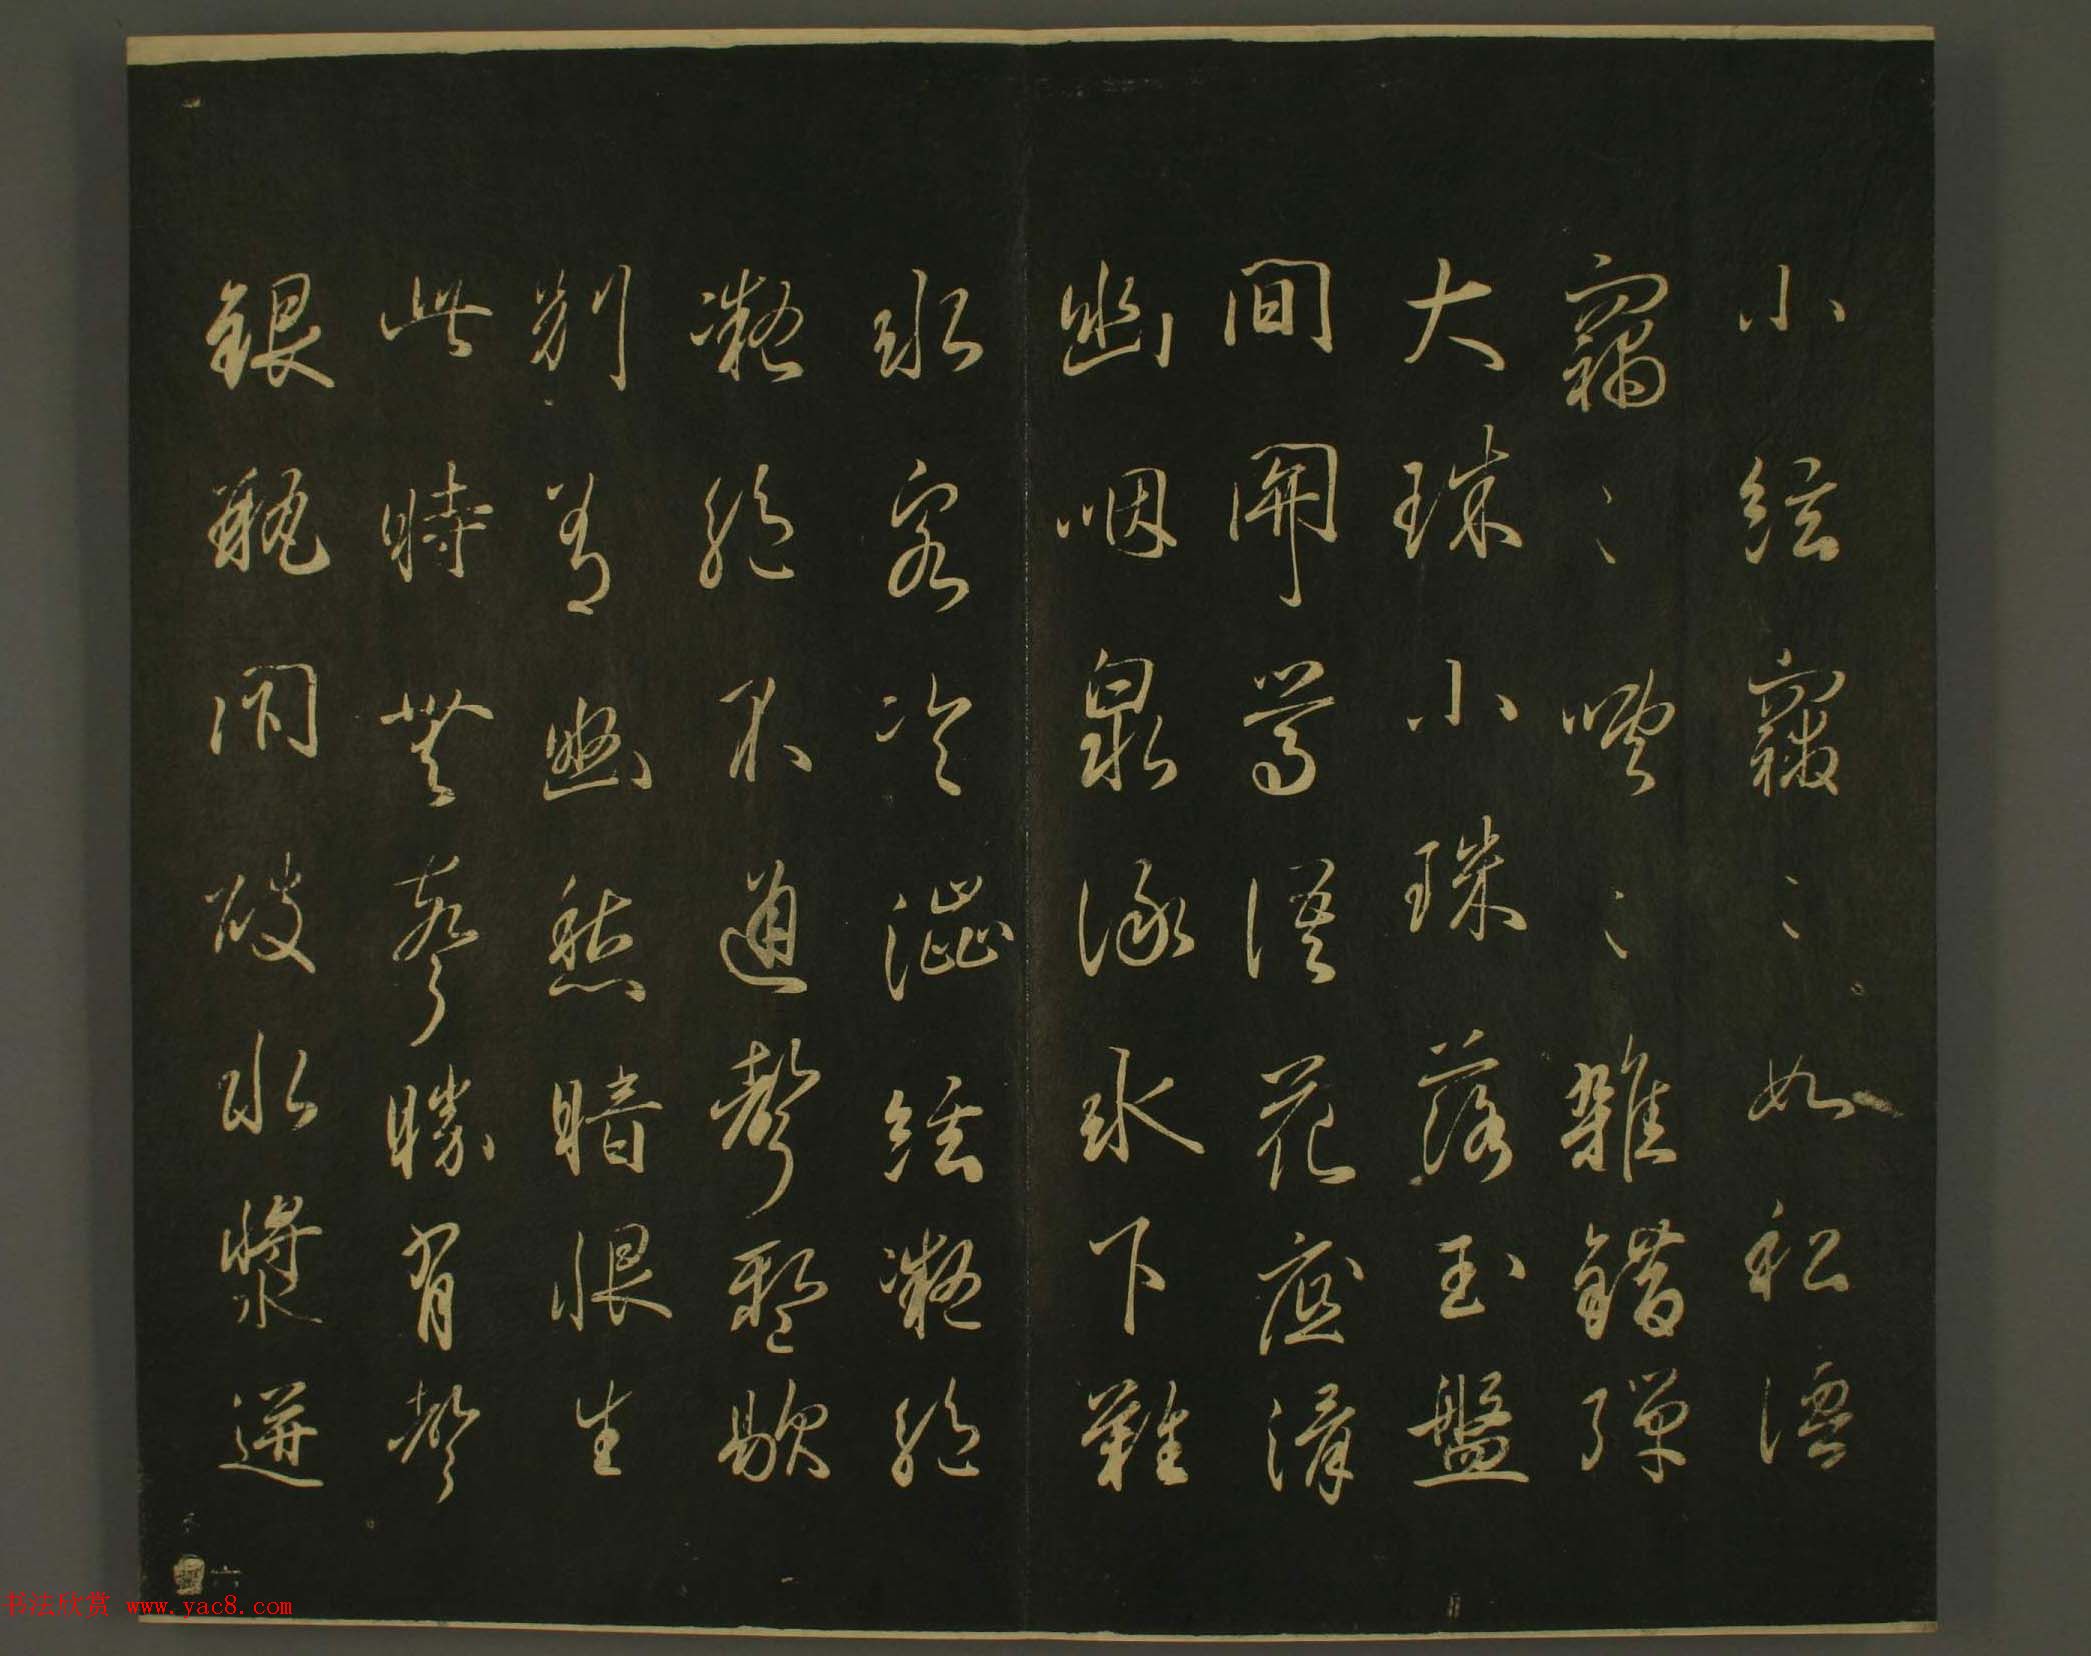 小絃竊〻如私語
竊〻嘈〻雜錯彈
大珠小珠落玉盤
間關鶯語花底滑
幽咽泉流氷下難
氷冷澀絃凝絶
凝絶不通聲暫歇
別有幽愁暗恨生
此時無聲勝有聲
銀瓶破水漿迸
书法欣赏 www.yac8.com